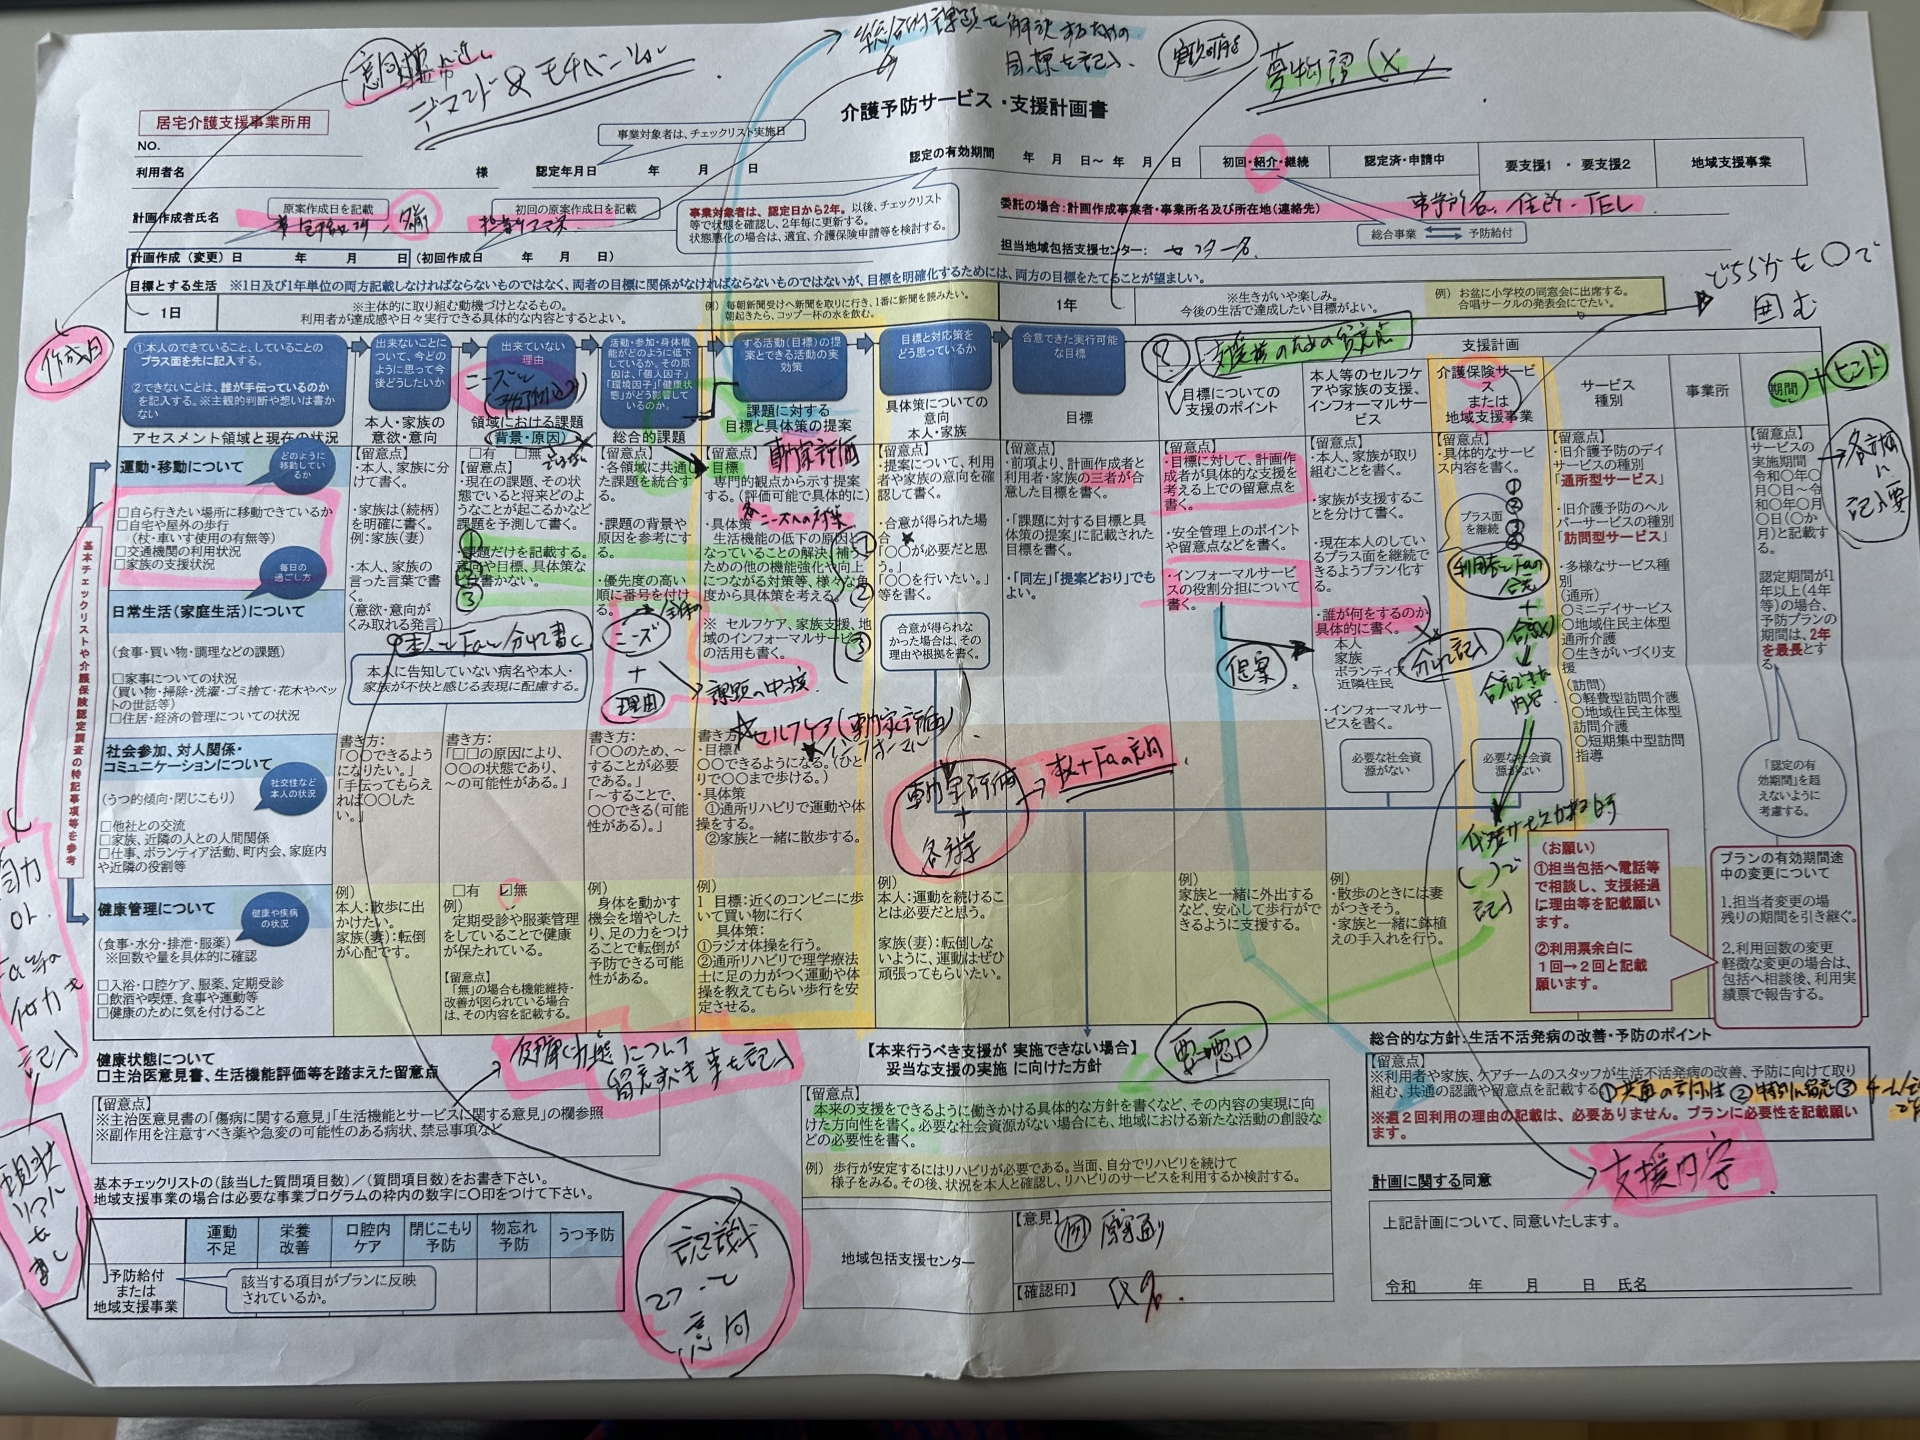 総合的課題を解決するための
目標を記入、
デマンド&モチベーション
夢物語(✕)
居宅介護支援事業所用
介護予防サービス・支援計画書
NO.
事業対象者は、チェックリスト実施日
利用者名 様 認定年月日 年 月 日
認定の有効期間 年 月 日~ 年 月 日
初回・紹介・継続
認定済・申請中
要支援1 ・ 要支援2
地域支援事業
原案作成日を記載
初回の原案作成日を記載
計画作成者氏名
名前
担当ケアマネ
事業対象者は、認定日から2年。以後、チェックリスト
等で状態を確認し、2年毎に更新する。
状態悪化の場合は、適宜、介護保険申請等を検討する。
委託の場合:計画作成事業者・事業所名及び所在地(連絡先)
事業所名、住所・TEL
総合事業 予防給付
担当地域包括支援センター: センター名
計画作成(変更)日 年 月 日(初回作成日 年 月 日)
どちらかを〇で
囲む
目標とする生活 ※1日及び1年単位の両方記載しなければならないものではなく、両者の目標に関係がなければならないものではないが、目標を明確化するためには、両方の目標をたてることが望ましい。
1日
※主体的に取り組む動機づけとなるもの。
利用者が達成感や日々実行できる具体的な内容とするとよい。
例) 毎朝新聞受けへ新聞を取りに行き、1番に新聞を読みたい。
朝起きたら、コップ一杯の水を飲む。
1年
※生きがいや楽しみ。
今後の生活で達成したい目標がよい。
例) お盆に小学校の同窓会に出席する。
合唱サークルの発表会にでたい。
作成日
①本人のできていること、していることの
プラス面を先に記入する。
②できないことは、誰が手伝っているのか
を記入する。※主観的判断や想いは書か
ない
アセスメント領域と現在の状況
出来ないことに
ついて、今どの
ように思って今
後どうしたいか
本人・家族の
意欲・意向
出来ていない
理由
領域における課題
(背景・原因)
活動・参加・身体機
能がどのように低下
しているか。その原
因は、「個人因子」
「環境因子」「健康状
態」がどう影響して
いるのか。
総合的課題
する活動(目標)の提
案とできる活動の実
効策
課題に対する
目標と具体策の提案
目標と対応策を
どう思っているか
具体策についての
意向
本人・家族
合意できた実行可能
な目標
目標
支援計画
目標についての
支援のポイント
本人等のセルフケ
アや家族の支援、
インフォーマルサー
ビス
介護保険サービ
ス
または
地域支援事業
サービス
種別
事業所
期間
基本チェックリストや介護保険認定調査の特記事項等を参考
運動・移動について
どのように
移動してい
るか
□自ら行きたい場所に移動できているか
□自宅や屋外の歩行
(杖・車いす使用の有無等)
□交通機関の利用状況
□家族の支援状況
毎日の
過ごし方
日常生活(家庭生活)について
(食事・買い物・調理などの課題)
□家事についての状況
(買い物・掃除・洗濯・ゴミ捨て・花木やペッ
トの世話等)
□住居・経済の管理についての状況
社会参加、対人関係・
コミュニケーションについて
社交性など
本人の状況
(うつ的傾向・閉じこもり)
□他社との交流
□家族、近隣の人との人間関係
□仕事、ボランティア活動、町内会、家庭内
や近隣の役割等
健康管理について
健康や疾病
の状況
(食事・水分・排泄・服薬)
※回数や量を具体的に確認
□入浴・口腔ケア、服薬、定期受診
□飲酒や喫煙、食事や運動等
□健康のために気を付けること
【留意点】
・本人、家族に分
けて書く。
・家族は(続柄)
を明確に書く。
例:家族(妻)
・本人、家族の
言った言葉で書
く。
(意欲・意向が
くみ取れる発言)
本人に告知していない病名や本人・
家族が不快と感じる表現に配慮する。
書き方:
「〇〇できるよう
になりたい。」
「手伝ってもらえ
れば〇〇した
い。」
例)
本人:散歩に出
かけたい。
家族(妻):転倒
が心配です。
□有 □無
【留意点】
・現在の課題、その状
態でいると将来どのよ
うなことが起こるかなど
課題を予測して書く。
・課題だけを記載する。
意向や目標、具体策な
どは書かない。
書き方:
「□□の原因により、
〇〇の状態であり、
~の可能性がある。」
□有 ☑無
例)
定期受診や服薬管理
をしていることで健康
が保たれている。
【留意点】
「無」の場合も機能維持・
改善が図られている場合
は、その内容を記載する。
【留意点】
・各領域に共通し
た課題を統合す
る。
・課題の背景や
原因を参考にす
る。
・優先度の高い
順に番号を付け
る。
ニーズ
+
理由
書き方:
「〇〇のため、~
することが必要
である。」
「~することで、
〇〇できる(可能
性がある)。」
例)
身体を動かす
機会を増やした
り、足の力をつけ
ることで転倒が
予防できる可能
性がある。
【留意点】
・目標
専門的観点から示す提案
する。(評価可能で具体的に)
・具体策
生活機能の低下の原因と
なっていることの解決、補う
ための他の機能強化や向上
につながる対策等、様々な角
度から具体策を考える。
※ セルフケア、家族支援、地
域のインフォーマルサービス
の活用も書く。
書き方:
・目標
〇〇できるようになる。(ひと
りで〇〇まで歩ける。)
・具体策
①通所リハビリで運動や体
操をする。
②家族と一緒に散歩する。
例)
1 目標:近くのコンビニに歩
いて買い物に行く
具体策:
①ラジオ体操を行う。
②通所リハビリで理学療法
士に足の力がつく運動や体
操を教えてもらい歩行を安
定させる。
【留意点】
・提案について、利用
者や家族の意向を確
認して書く。
・合意が得られた場
合
「〇〇が必要だと思
う。」
「〇〇を行いたい。」
等を書く。
合意が得られな
かった場合は、その
理由や根拠を書く。
例)
本人:運動を続けるこ
とは必要だと思う。
家族(妻):転倒しな
いように、運動はぜひ
頑張ってもらいたい。
【留意点】
・前項より、計画作成者と
利用者・家族の三者が合
意した目標を書く。
・「課題に対する目標と具
体策の提案」に記載された
目標を書く。
・「同左」「提案どおり」でも
よい。
【留意点】
・目標に対して、計画作
成者が具体的な支援を
考える上での留意点を
書く。
・安全管理上のポイント
や留意点などを書く。
・インフォーマルサービ
スの役割分担について
書く。
提案
例)
家族と一緒に外出する
など、安心して歩行がで
きるように支援する。
【留意点】
・本人、家族が取り
組むことを書く。
・家族が支援するこ
とを分けて書く。
・現在本人のしてい
るプラス面を継続で
きるようプラン化す
る。
・誰が何をするのか
具体的に書く。
本人
家族
ボランティア
近隣住民
・インフォーマルサー
ビスを書く。
必要な社会資
源がない
例)
・散歩のときには妻
がつきそう。
・家族と一緒に鉢植
えの手入れを行う。
【留意点】
・具体的なサービ
ス内容を書く。
プラス面
を継続
分けて記入
必要な社会資
源がない
【留意点】
・旧介護予防のデイ
サービスの種別
「通所型サービス」
・旧介護予防のヘル
パーサービスの種別
「訪問型サービス」
・多様なサービス種
別
(通所)
〇ミニデイサービス
〇地域住民主体型
通所介護
〇生きがいづくり支
援
(訪問)
〇軽費型訪問介護
〇地域住民主体型
訪問介護
〇短期集中型訪問
指導
【留意点】
サービスの
実施期間
令和〇年〇
月〇日~令
和〇年〇月
〇日(〇か
月)と記載す
る。
認定期間が1
年以上(4年
等)の場合、
予防プランの
期間は、2年
を最長とす
る。
「認定の有
効期間」を超
えないように
考慮する。
(お願い)
①担当包括へ電話等
で相談し、支援経過
に理由等を記載願い
ます。
②利用票余白に
1回→2回と記載
願います。
プランの有効期間途
中の変更について
1.担当者変更の場
残りの期間を引き継ぐ。
2.利用回数の変更
軽微な変更の場合は、
包括へ相談後、利用実
績票で報告する。
健康状態について
□主治医意見書、生活機能評価等を踏まえた留意点
【留意点】
※主治医意見書の「傷病に関する意見」「生活機能とサービスに関する意見」の欄参照
※副作用を注意すべき薬や急変の可能性のある病状、禁忌事項など
【本来行うべき支援が 実施できない場合】
妥当な支援の実施 に向けた方針
【留意点】
本来の支援をできるように働きかける具体的な方針を書くなど、その内容の実現に向
けた方向性を書く。必要な社会資源がない場合にも、地域における新たな活動の創設な
どの必要性を書く。
例) 歩行が安定するにはリハビリが必要である。当面、自分でリハビリを続けて
様子をみる。その後、状況を本人と確認し、リハビリのサービスを利用するか検討する。
総合的な方針:生活不活発病の改善・予防のポイント
【留意点】
※利用者や家族、ケアチームのスタッフが生活不活発病の改善、予防に向けて取り
組む、共通の認識や留意点を記載する
※週2回利用の理由の記載は、必要ありません。プランに必要性を記載願い
ます。
支援内容
基本チェックリストの(該当した質問項目数)/(質問項目数)をお書き下さい。
地域支援事業の場合は必要な事業プログラムの枠内の数字に〇印をつけて下さい。
運動
不足
栄養
改善
口腔内
ケア
閉じこもり
予防
物忘れ
予防
うつ予防
予防給付
または
地域支援事業
該当する項目がプランに反映
されているか。
地域包括支援センター
【意見】
(例) 原案通り
【確認印】
計画に関する同意
上記計画について、同意いたします。
令和 年 月 日 氏名